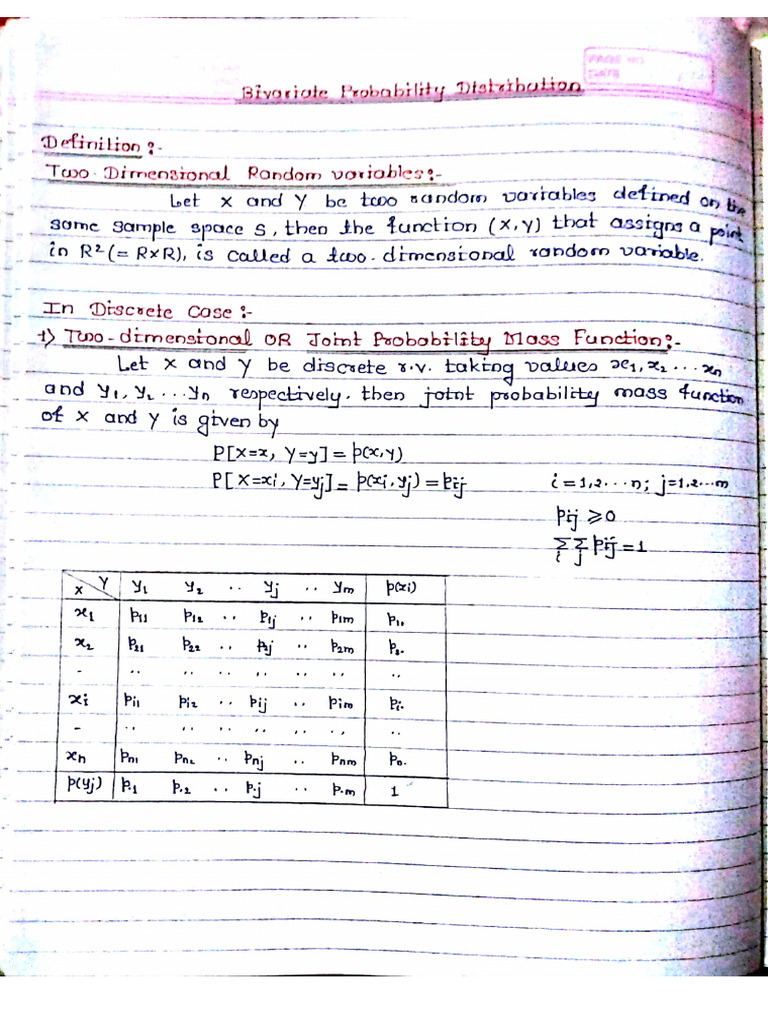 PAGE NO.
DATE
Bivariate Probability Distribution
Definition :-
Two-Dimensional Random variables:-
Let X and Y be two random variables defined on the
same sample space S, then the function (X,Y) that assigns a point
in R²(= R×R), is called a two-dimensional random variable.
In Discrete Case :-
1) Two-dimensional OR Joint Probability Mass Function:-
Let X and Y be discrete r.v. taking values x1, x2 ... xn
and y1, y2 ... yn respectively. then joint probability mass function
of X and Y is given by
P[X=x, Y=y] = p(x,y)
P[X=xi, Y=yj] = p(xi,yj) = pij i=1,2...n; j=1,2...m
pij ≥ 0
Σi Σj pij = 1
X Y y1 y2 .. yj .. ym p(xi)
x1 p11 p12 .. p1j .. p1m p1.
x2 p21 p22 .. p2j .. p2m p2.
- .. .. .. .. .. .. ..
xi pi1 pi2 .. pij .. pim pi.
- .. .. .. .. .. .. ..
xn pn1 pn2 .. pnj .. pnm pn.
p(yj) p.1 p.2 .. p.j .. p.m 1